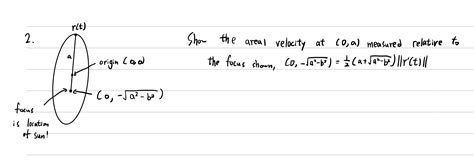 2.
r(t)
a
origin (0,0)
(0, -√a²-b²)
focus
is location
of sun!
Show the areal velocity at (0,a) measured relative to
the focus shown, (0, -√a²-b²) = ½ (a+√a²-b²) ||r'(t)||